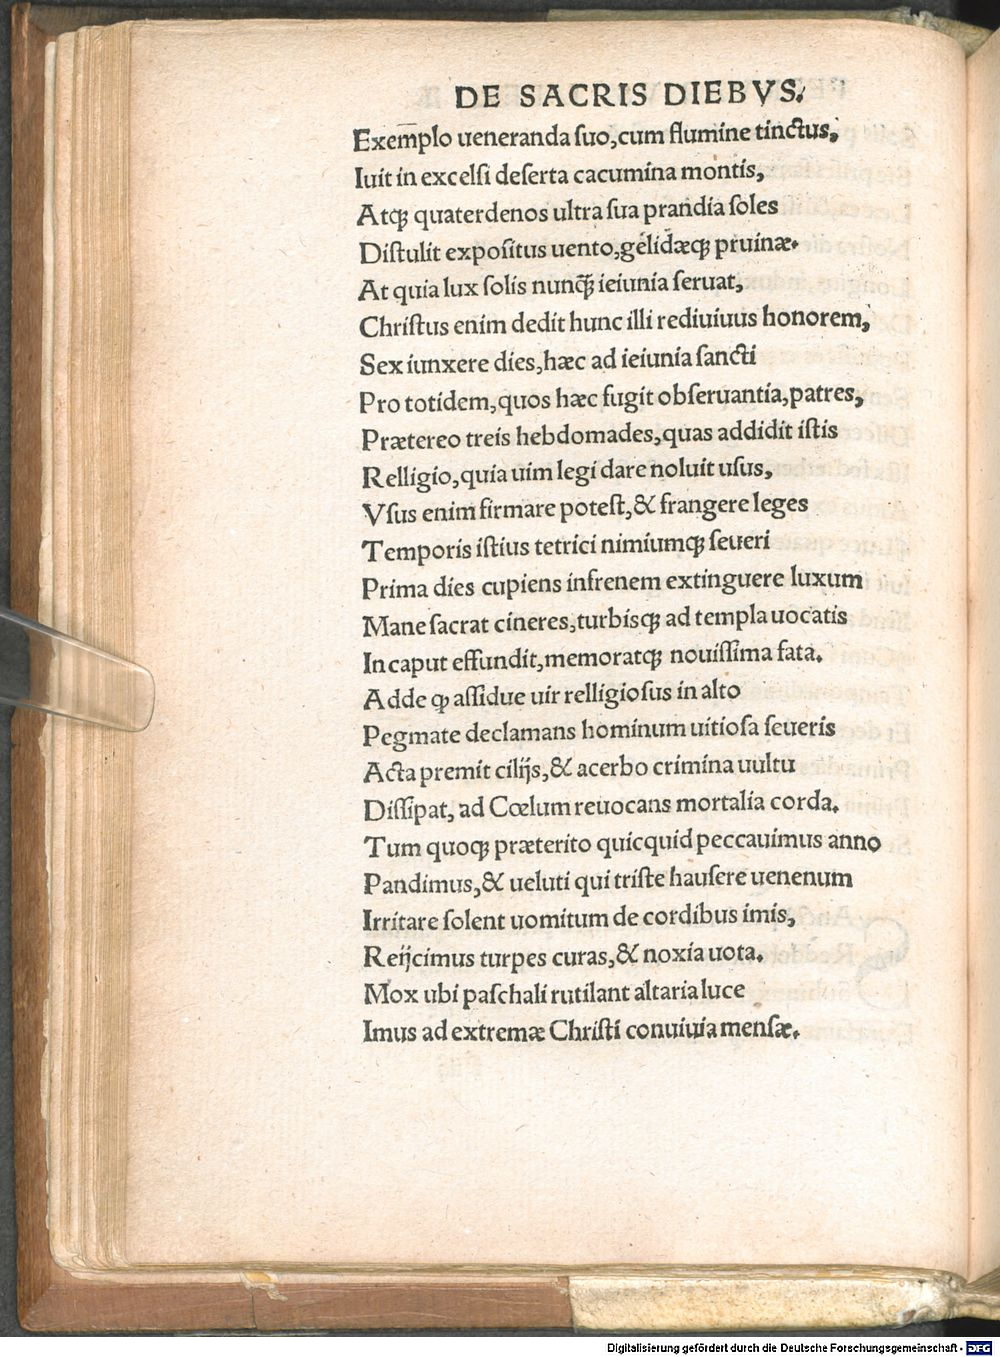 DE SACRIS DIEBVS.
Exem̄plo ueneranda suo, cum flumine tinctus,
Iuit in excelsi deserta cacumina montis,
Atq; quaterdenos ultra sua prandia soles
Distulit expositus uento, gelidæq; pruinæ.
At quia lux solis nunq̃ ieiunia seruat,
Christus enim dedit hunc illi rediuiuus honorem,
Sex iunxere dies, hæc ad ieiunia sancti
Pro totidem, quos hæc fugit obseruantia, patres,
Prætereo treis hebdomades, quas addidit istis
Relligio, quia uim legi dare noluit usus,
Vsus enim firmare potest, & frangere leges
Temporis istius tetrici nimiumq; seueri
Prima dies cupiens infrenem extinguere luxum
Mane sacrat cineres, turbisq; ad templa uocatis
In caput effundit, memoratq; nouissima fata.
Adde ꝙ assidue uir relligiosus in alto
Pegmate declamans hominum uitiosa seueris
Acta premit cilijs, & acerbo crimina uultu
Dissipat, ad Cœlum reuocans mortalia corda.
Tum quoq; præterito quicquid peccauimus anno
Pandimus, & ueluti qui triste hausere uenenum
Irritare solent uomitum de cordibus imis,
Reijcimus turpes curas, & noxia uota.
Mox ubi paschali rutilant altaria luce
Imus ad extremæ Christi conuiuia mensæ.
Digitalisierung gefördert durch die Deutsche Forschungsgemeinschaft - DFG